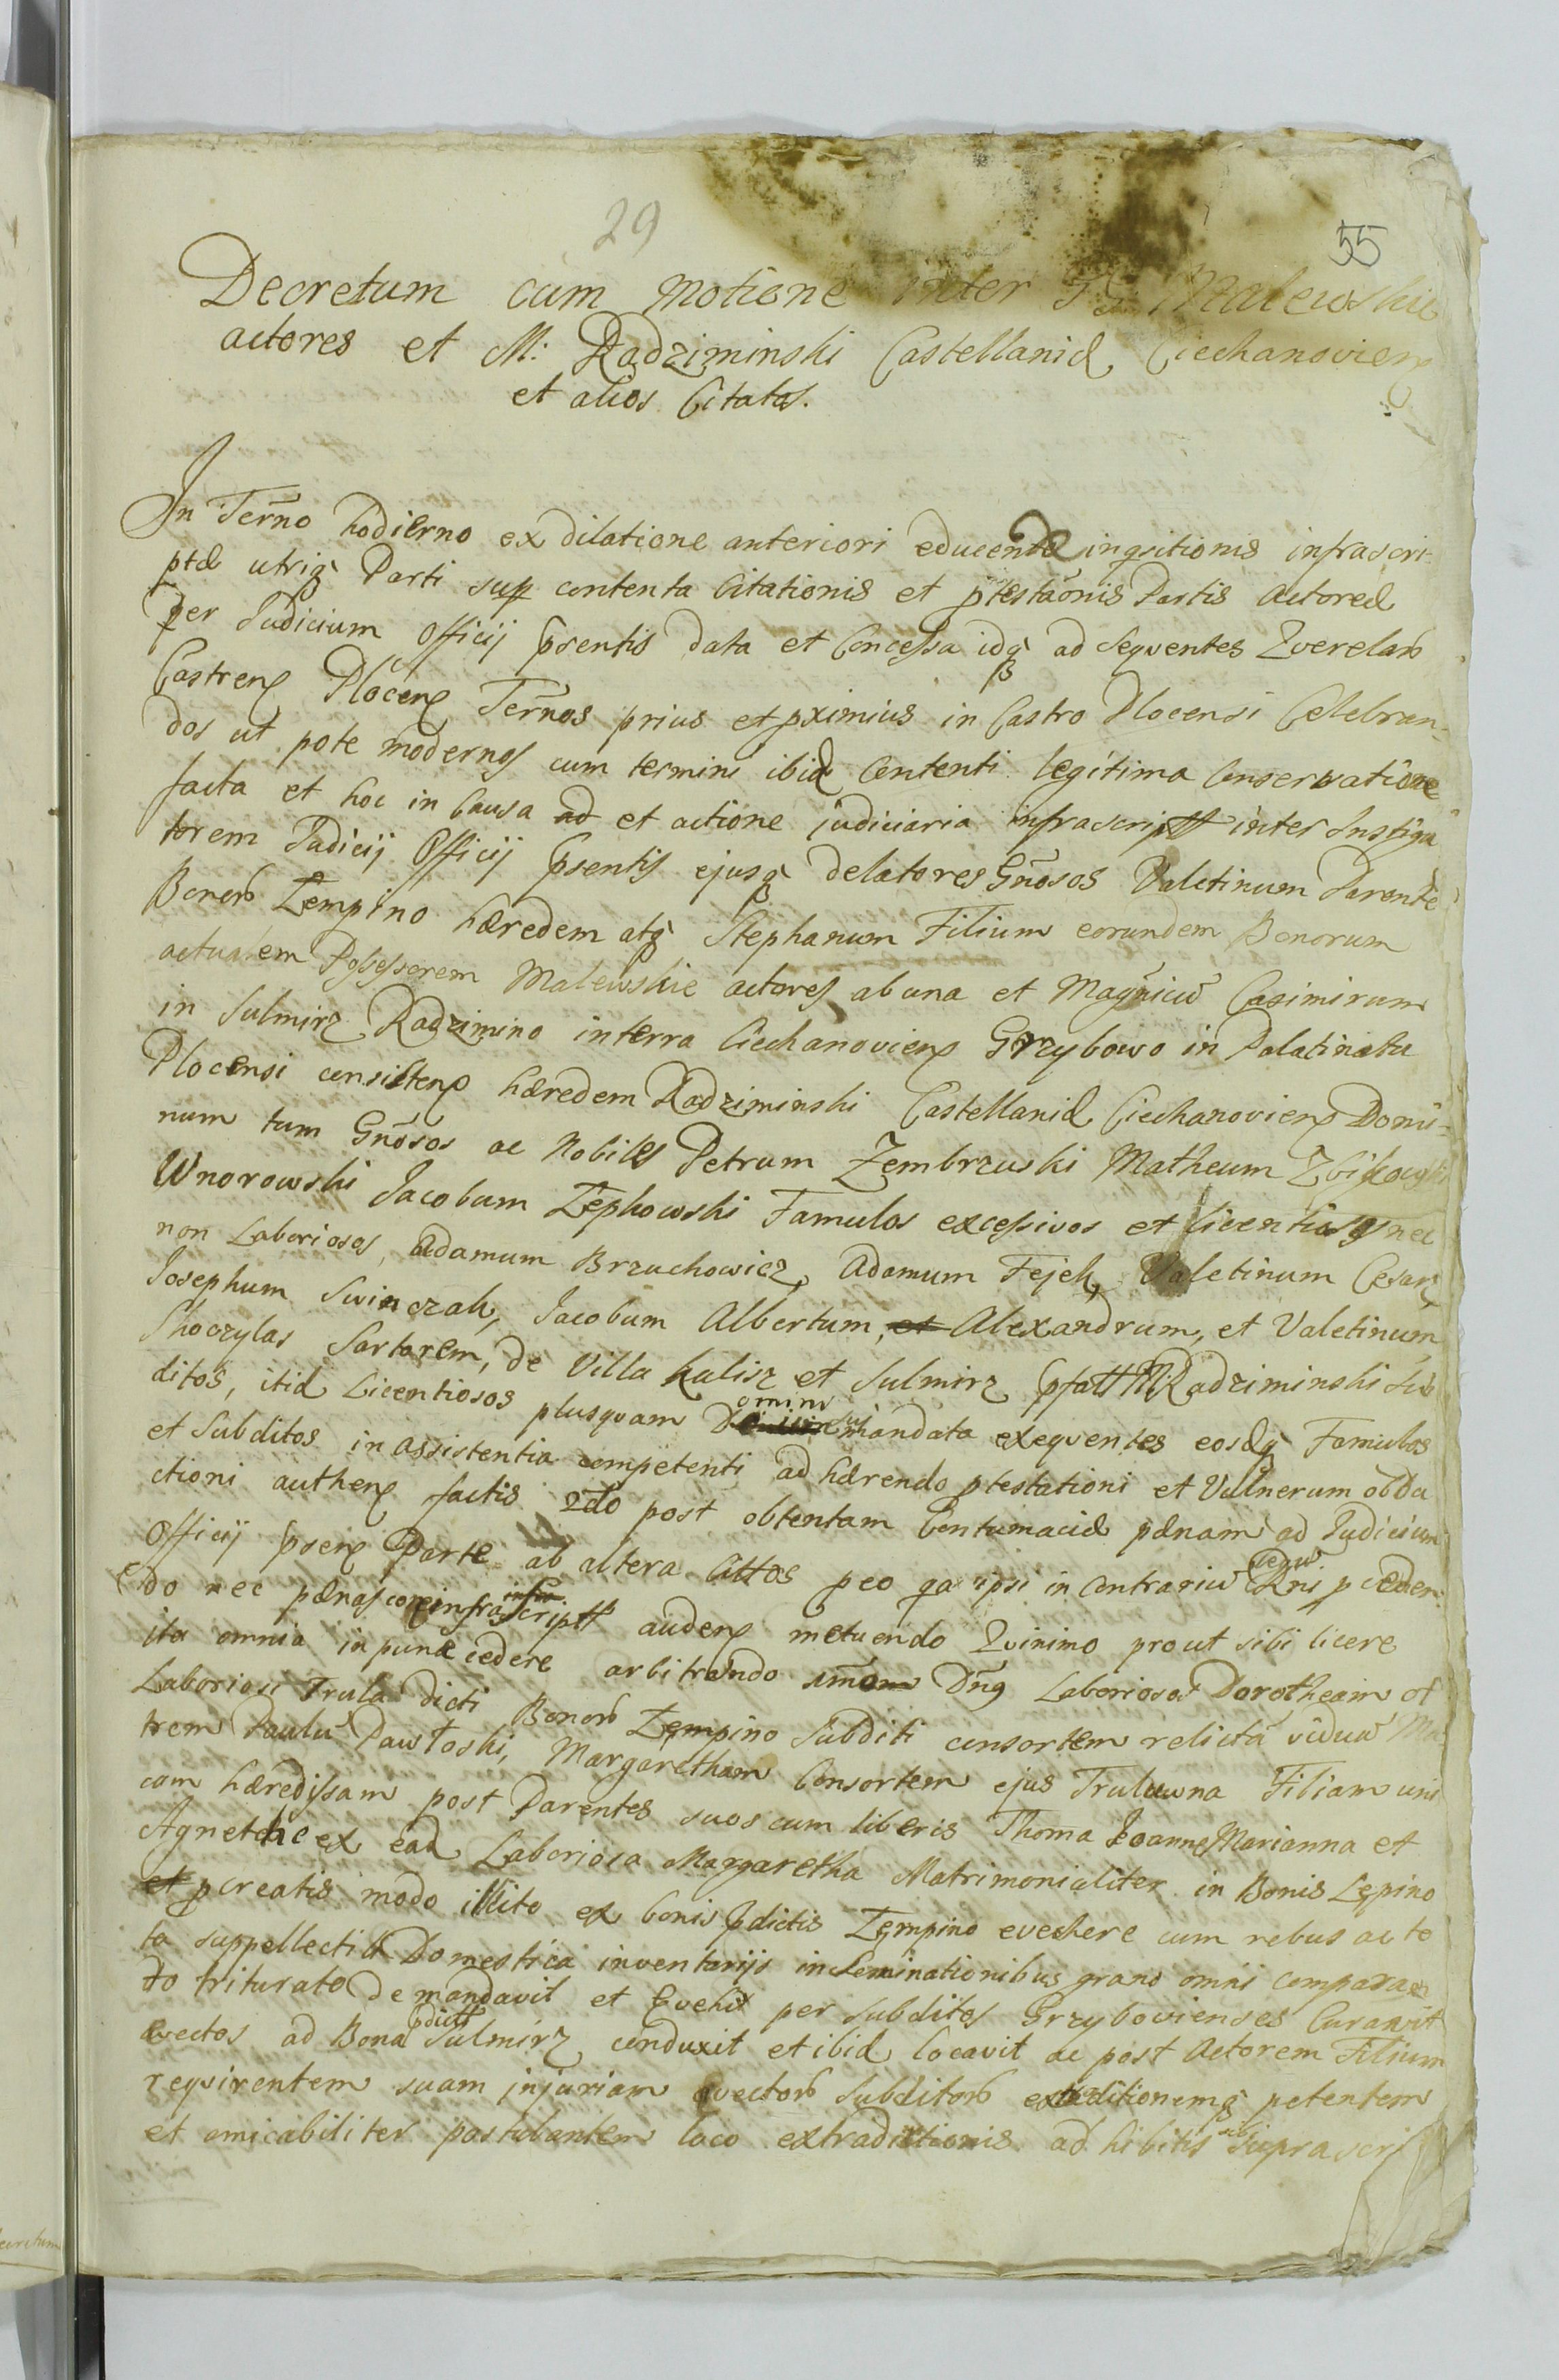 29
55
Decretum cum Motione inter GG Malewskie
actores et M: Radziminski Castellanid. Ciechanovien
et alios Citatos.
In Terno hodierno ex dilatione anteriori educendæ inqsitionis infrascri-
ptæ utriq Parti sup contenta Citationis et ptestaonis Partis Actoreæ
per Judicium Officij psentis data et Concessa idq ad Seqventes Qverelar
Castren Plocen Ternos prius et pximius in Castro Plocensi Celebran-
dos ut pote modernos cum termini ibid Contenti legitima Conservatione
facta et hoc in Causa ad et actione judiciaria infrascriptt inter Instiga
torem Judicij Officij psentis ejusq delatores Gnosos Valetinum Parente
Bonor Zempino hæredem atq Stephanum Filium eorundem Bonorum
actualem Possessorem Malewskie actores ab una et Magnicu Casimirum
in Sulmirz Radzimino in terra Ciechanovien Grzybowo in Palatinatu
Plocensi consisten hæredem Radziminski Castellanid Ciechanovien Domi-
num tum Gnosos ac Nobiles Petrum Zembrzuski Matheum Zbikowski
Wnorowski Jacobum Zepkowski Famulos excessivos et licentiosos nec
non Laboriosos, Adamum Brzuchowicz, Adamum Fejek, Valetinum Cesarz
Josephum Swinczak, Jacobum Albertum, et Alexandrum, et Valetinum
Skoczylas Sartorem, de Villa Kalisz et Sulmirz pfatt M: Radziminski Sub
ditos, itid Licentiosos plusqvam Domini sui mandata exeqventes eosdq Famulos
et Subditos in assistentia competenti adhærendo ptestationi et Vulnerum obdu
ctioni authen factis 2do post obtentam Contumaciæ pænam ad Judicium
Officij psen Parte ab altera Cittos peo qa ipsi in Contrariu Legu Rni pceden-
do nec pænas infrascriptt auden metuendo Qvinimo prout sibi licere
ita omnia inpune cedere arbitrando Dnq Laboriosos Dorotheam of
Laboriosi Trula dicti Bonor Zempino Subditi consortem relicta vidua Ma
trem Paulu Pawtoski, Margaretham Consortem ejus Trulawna Filiam uni
cam hæredissam post Parentes suos cum liberis Thoma Joanne Marianna et
Agnetha ex ead Laboriosa Margaretha Matrimonialiter in Bonis Lępino
et pcreatis modo illito ex bonis pdictis Zempino evechere cum rebus ac to
ta suppellectili Domestica inventarijs inseminationibus grano omni comparan
do triturato demandavit et Evehi per Subditos Grzybovienses Curavit
evectos ad Bona pdictt Sulmirz conduxit et ibid locavit ac post Actorem Filium
reqvirentem suam injuriam evector Subditor extraditionemq petentem
et amicabiliter postulantem loco extraditionis adhibitis sibi suprascri